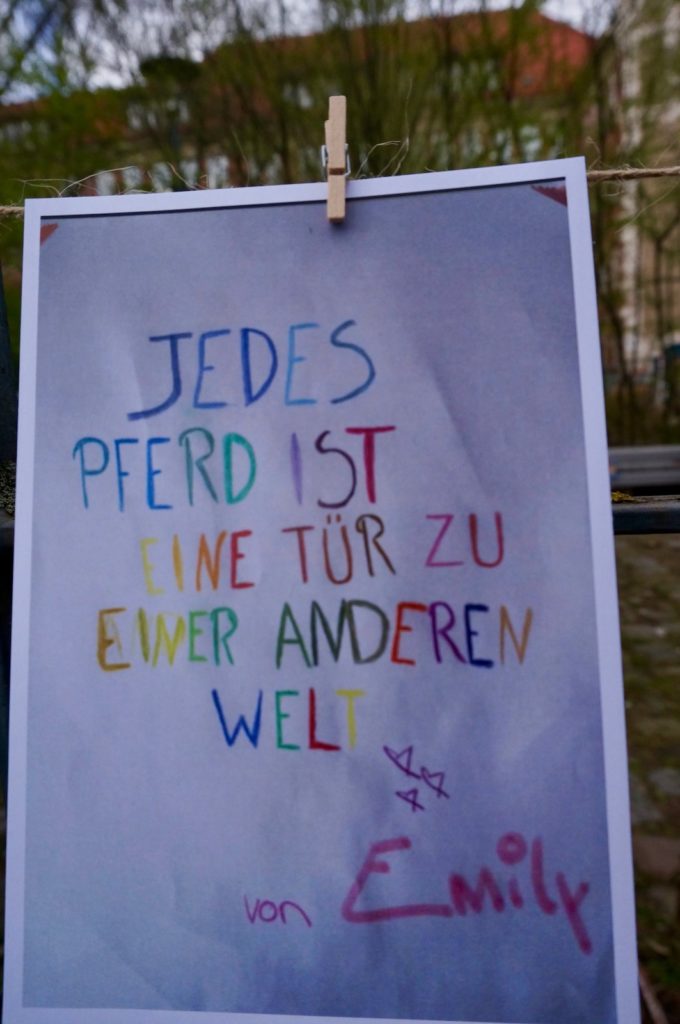 JEDES
PFERD IST
EINE TÜR ZU
EINER ANDEREN
WELT
von Emily